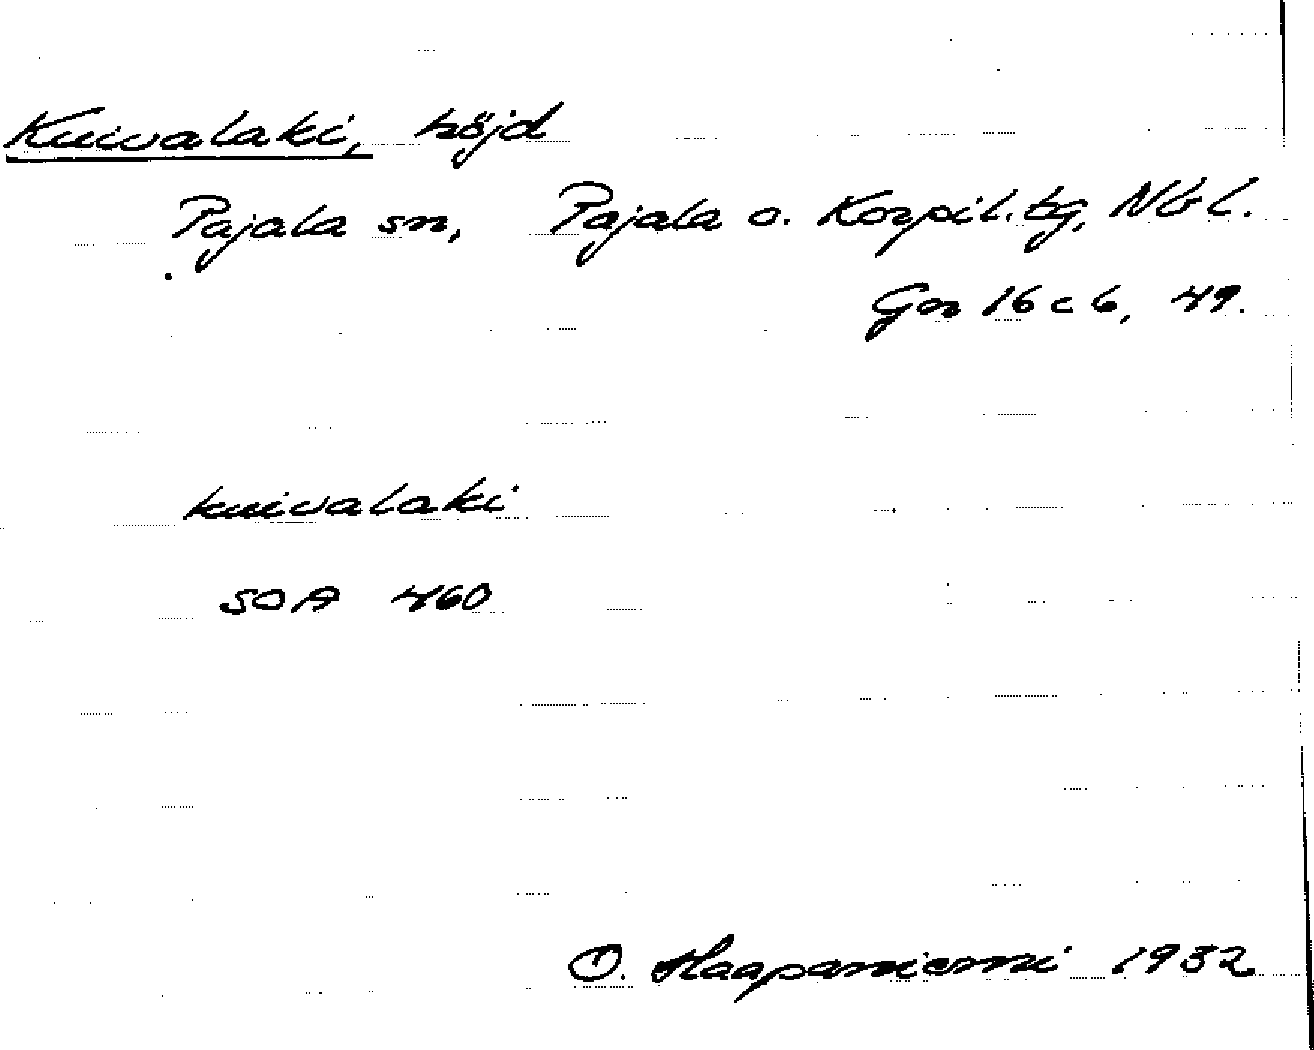 Kuivalaki, höjd
Pajala sn, Pajala o. Korpil. tg, Nbl.
Gör 16 c 6, 49.
kuivalaki
SOA 460
O. Haapaniemi 1932